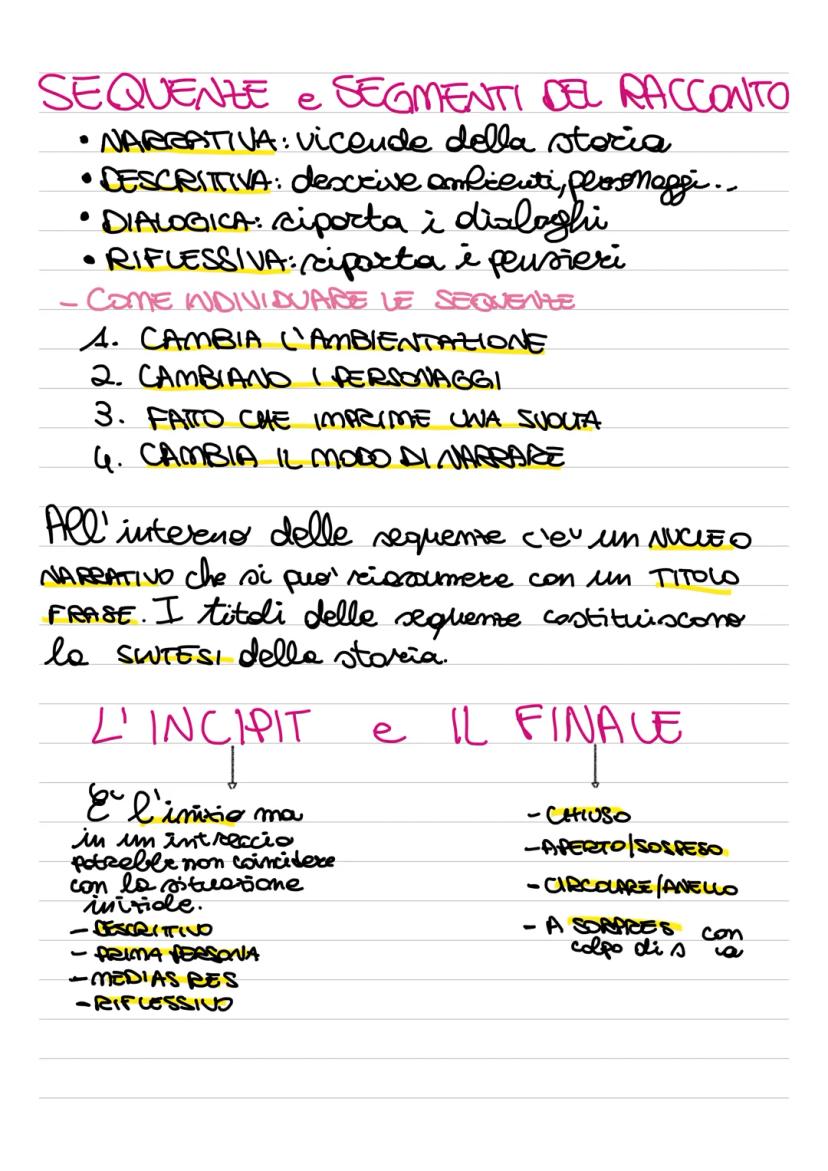 SEQUENZE e SEGMENTI DEL RACCONTO
• NARRATIVA: vicende della storia
• DESCRITTIVA: descrive ambienti, personaggi...
• DIALOGICA: riporta i dialoghi
• RIFLESSIVA: riporta i pensieri
- COME INDIVIDUARE LE SEQUENZE
1. CAMBIA L'AMBIENTAZIONE
2. CAMBIANO I PERSONAGGI
3. FATTO CHE IMPRIME UNA SVOLTA
4. CAMBIA IL MODO DI NARRARE
All'interno delle sequenze c'è un NUCLEO
NARRATIVO che si può riassumere con un TITOLO
FRASE. I titoli delle sequenze costituiscono
la SINTESI della storia.
L'INCIPIT e IL FINALE
È l'inizio ma
in un intreccio
potrebbe non coincidere
con la situazione
iniziale.
- DESCRITTIVO
- PRIMA PERSONA
- MEDIAS RES
- RIFLESSIVO
- CHIUSO
- APERTO/SOSPESO
- CIRCOLARE/ANELLO
- A SORPRES con
colpo di s